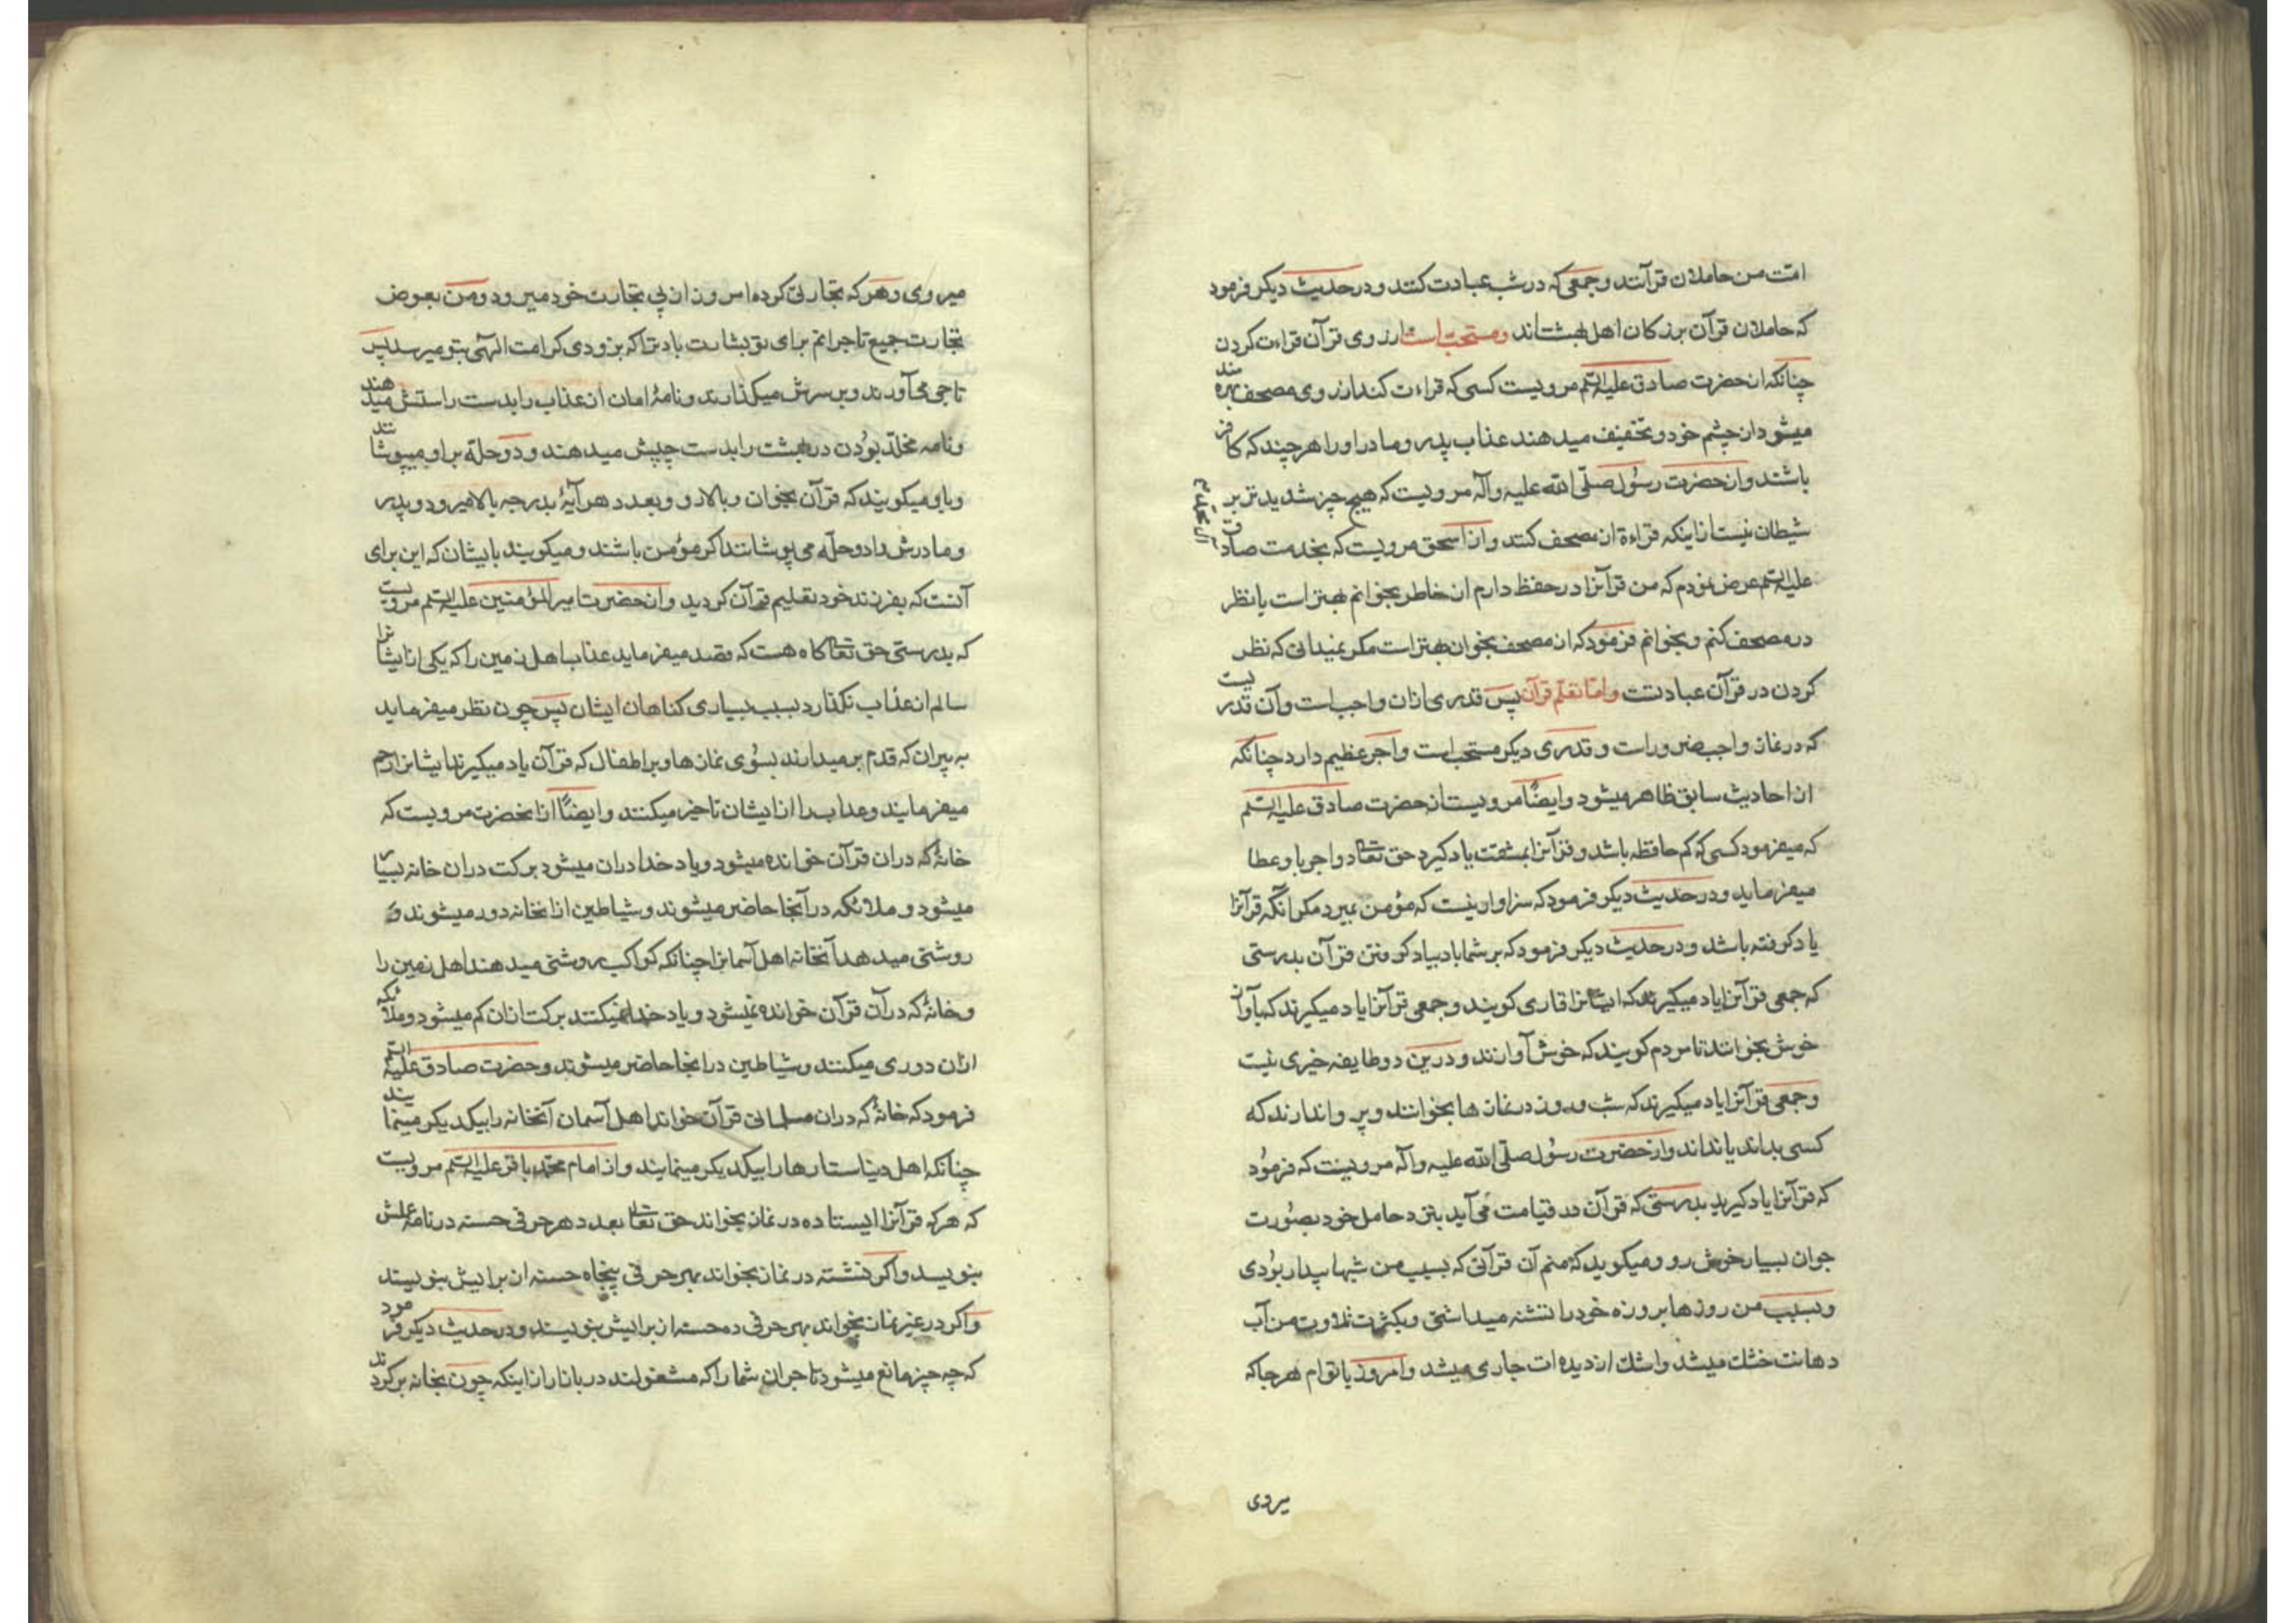 امّت من حاملان قرآنند و جمعی که در شب عبادت کنند و در حدیث دیکر فرمود
که حاملان قرآن بزرکان اهل بهشت‌اند و مستحب است از روی قرآن قراءت کردن
چنانکه از حضرت صادق علیه السلم مرویست کسی که قراءت کند از روی مصحف بهره مند
میشود از چشم خود و تخفیف میدهند عذاب پدر و مادر او را هر چند که کافر
باشند و از حضرت رسُول صلّی الله علیه وآله مرویست که هیچ چیز شدیدتر بر
شیطان نیست از اینکه قراءة از مصحف کنند و از اسحق مرویست که بخدمت صادق
علیه السلم عرض نمودم که من قرآنرا در حفظ دارم از خاطر بخوانم بهتر است یا نظر
در مصحف کنم و بخوانم فرمود که از مصحف بخوان بهتر است مکر نمیدانی که نظر
کردن در قرآن عبادتست و امّا تعلّم قرآن پس قدری ازان واجب است و آن قدریست
که در نماز واجب ضرور است و قدری دیکر مستحب است و اجر عظیم دارد چنانکه
از احادیث سابق ظاهر میشود و ایضًا مرویست از حضرت صادق علیه السلم
که میفرمود کسی که کم حافظه باشد و قرآنرا بمشقت یاد کیرد حق تعالی دو اجر باو عطا
میفرماید و در حدیث دیکر فرمود که سزاوار نیست که مؤمن بمیرد مکر آنکه قرآنرا
یاد کرفته باشد و در حدیث دیکر فرمود که بر شما باد بیاد کرفتن قرآن بدرستی
که جمعی قرآنرا یاد میکیرند که ایشانرا قاری کویند و جمعی قرآنرا یاد میکیرند که بآواز
خوش بخوانند تا مردم کویند که خوش آوازند و درین دو طایفه خیری نیست
و جمعی قرآنرا یاد میکیرند که شب و روز در نماز ها بخوانند و پروا ندارند که
کسی بداند یا نداند و از حضرت رسُول صلّی الله علیه وآله مرویست که فرمُود
که قرآنرا یاد کیرید بدرستی که قرآن در قیامت می‌آید بنزد حامل خود بصُورت
جوان بسیار خوش رو و میکوید که منم آن قرآنی که بسبب من شبها بیدار بوُدی
و بسبب من روزها بروزه خود را تشنه میداشتی و بکثرت تلاوت من آب
دهانت خشک میشد و اشک از دیده ات جاری میشد و امروز با توام هر جا که
میروی
میروی و هر که تجارتی کرده امروز از پی تجارت خود میرود و من بعوض
تجارت جمیع تاجرانم برای تو بشارت باد ترا که بزودی کرامت الهی بتو میرسد پس
تاجی می‌آورند و بر سرش میکذارند و نامۀ امان از عذاب را بدست راستش میدهند
و نامه مخلّد بوُدن در بهشت را بدست چپش میدهند و دو حلّه بر او میپوشانند
و باو میکویند که قرآن بخوان و بالا رو و بعدد هر آیۀ بدرجه بالا میرود و پدر
و مادرش را دو حلّه می‌پوشانند اکر مؤمن باشند و میکویند بایشان که این برای
آنست که بفرزند خود تعلیم قرآن کردید و از حضرت امیر المؤمنین علیه السلم مرویست
که بدرستی حق تعالی کاه هست که قصد میفرماید عذاب اهل زمین را که یکی از ایشانرا
سالم از عذاب نکذارد بسبب بسیاری کناهان ایشان پس چون نظر میفرماید
به پیران که قدم بر میدارند بسوُی نماز ها و بر اطفال که قرآن یاد میکیرند ایشانرا رحم
میفرمایند و عذاب را از ایشان تاخیر میکنند و ایضًا از آنحضرت مرویست که
خانۀ که در ان قرآن خوانده میشود و یاد خدا دران میشود برکت دران خانه بسیار
میشود و ملائکه در آنجا حاضر میشوند و شیاطین از انخانه دور میشوند و
روشنی میدهد آنخانه اهل آسمانرا چنانکه کواکب روشنی میدهند اهل زمین را
و خانۀ که در آن قرآن خوانده نمیشود و یاد خدا نمیکنند برکت ازان کم میشود و ملائکه
ازان دوری میکنند و شیاطین در انجا حاضر میشوند و حضرت صادق علیه السلم
فرمود که خانۀ که دران مسلمانی قرآن خواند اهل آسمان آنخانه را بیکدیکر مینمایند
چنانکه اهل دنیا ستارها را بیکدیکر مینمایند و از امام محمّد باقر علیه السلم مرویست
که هر که قرآنرا ایستاده در نماز بخواند حق تعالی بعدد هر حرفی حسنه در نامه عملش
بنویسد و اکر نشسته در نماز بخواند بهر حرفی پنجاه حسنه از برایش بنویسند
و اکر در غیر نماز بخواند بهر حرفی ده حسنه از برایش بنویسند و در حدیث دیکر فرمود
که چه چیز مانع میشود تاجران شما را که مشغولند در بازار از اینکه چون بخانه برکردند